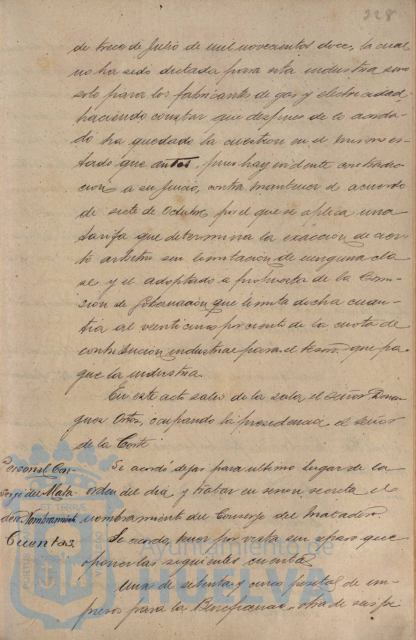 228
de trece de Julio de mil novecientos doce, la cual
no ha sido dictada para esta industria sino
solo para los fabricantes de gas y electricidad,
haciendo constar que despues de lo acorda-
do ha quedado la cuestion en el mismo es-
tado que antes, pues hay evidente contradic-
cion a su juicio, entre mantener el acuerdo
de siete de Octubre, por el que se aplica una
tarifa que determina la exaccion de cier-
to arbitrio sin limitacion de ninguna cla-
se, y el adoptado a propuesta de la Comi-
sión de Gobernación que limita dicha cuan-
tia al veinticinco por ciento de la cuota de
contribución industrial para el Tesoro, que pa-
gue la industria.
En este acto sale de la sala el Señor
ocupando la presidencia el Señor
de la Corte
Personal Con-
serje del Mata-
dero. Nombramiento
Se acordó dejar para ultimo lugar de la
orden del dia y tratar en sesion secreta el
nombramiento del Conserje del Matadero.
Cuentas
Se acordó tener por vista sin reparo que
oponer las siguientes cuentas
Una de setenta y cinco pesetas de im-
presos para la Beneficencia, otra de
Ayuntamiento de
HUELVA